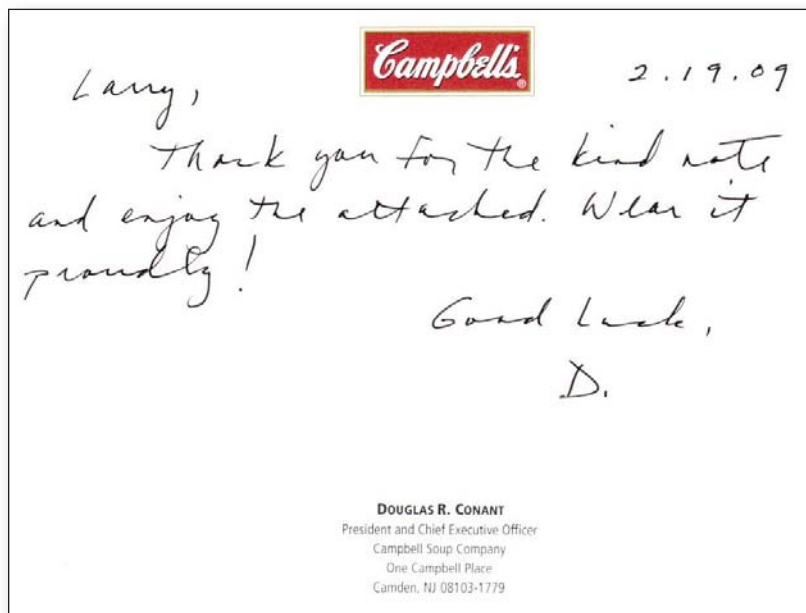 Campbell's®
2.19.09
Larry,
Thank you for the kind note
and enjoy the attached. Wear it
proudly!
Good Luck,
D.
DOUGLAS R. CONANT
President and Chief Executive Officer
Campbell Soup Company
One Campbell Place
Camden, NJ 08103-1779